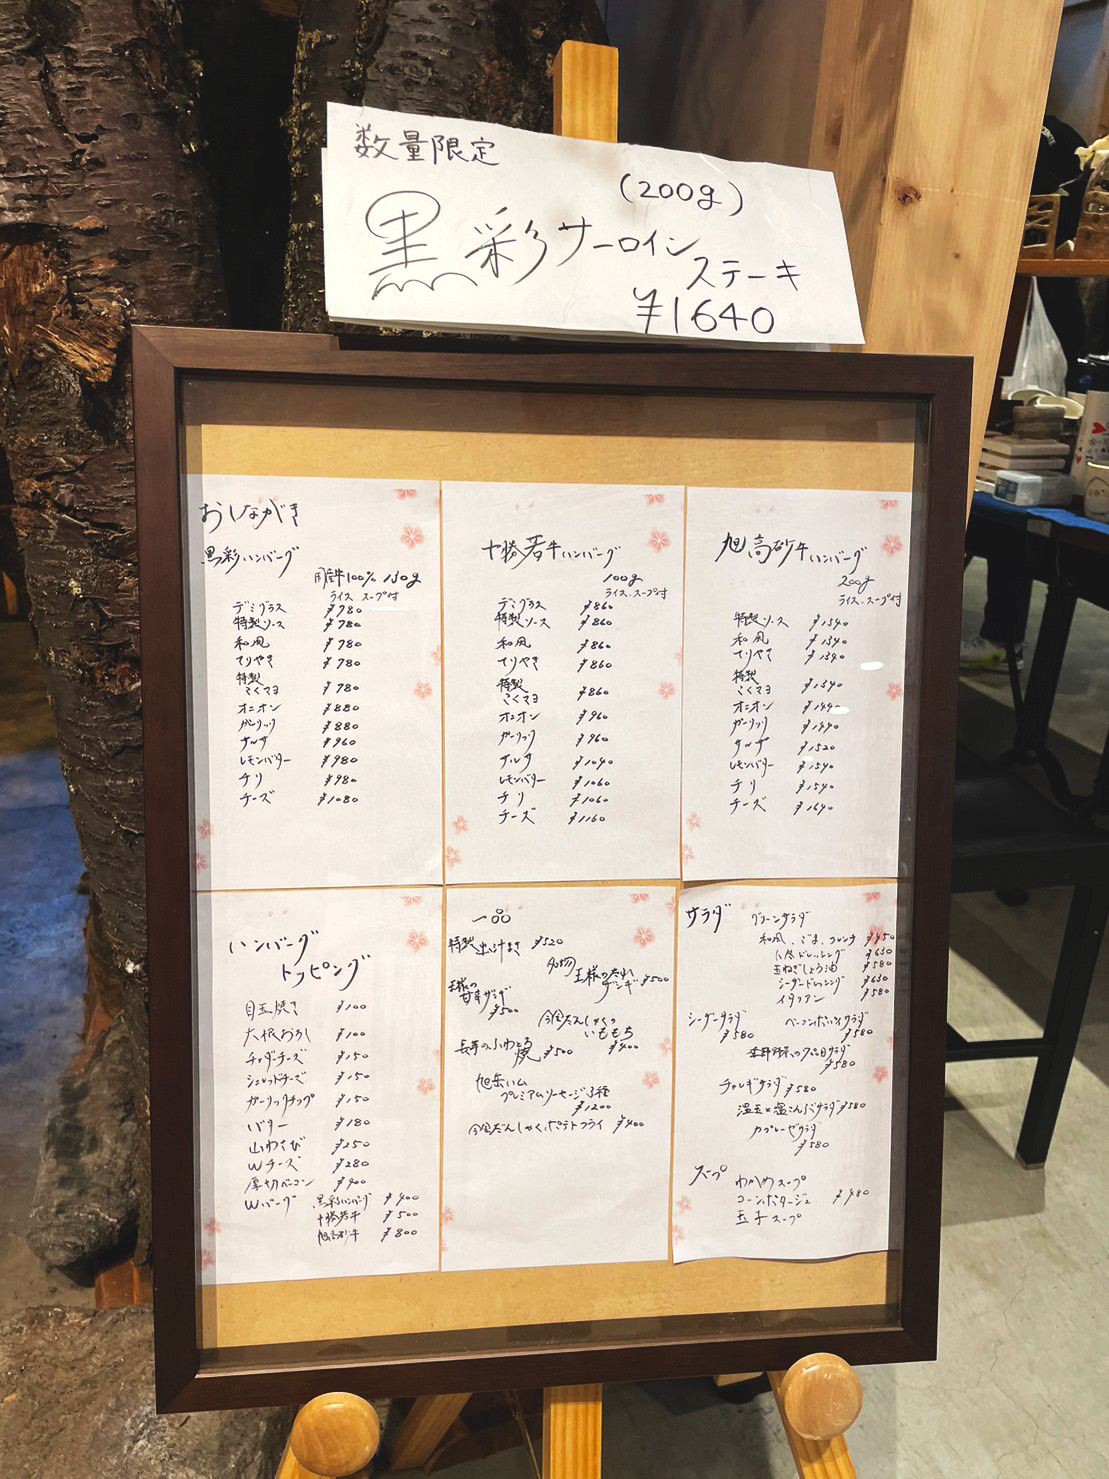 数量限定
(200g)
黒彩サーロイン
ステーキ
¥1640
おしながき
黒彩ハンバーグ
国産牛100% 130g
ライス スープ付
デミグラス ¥780
特製ソース ¥780
和風 ¥780
てりやき ¥780
特製
こくマヨ ¥780
オニオン ¥880
ガーリック ¥880
サルサ ¥960
レモンバター ¥980
チリ ¥980
チーズ ¥1080
十勝若牛ハンバーグ
100g
ライス、スープ付
デミグラス ¥860
特製ソース ¥860
和風 ¥860
てりやき ¥860
特製
こくマヨ ¥860
オニオン ¥960
ガーリック ¥960
サルサ ¥1040
レモンバター ¥1060
チリ ¥1060
チーズ ¥1160
旭高砂牛ハンバーグ
200g
ライス、スープ付
特製ソース ¥1340
和風 ¥1340
てりやき ¥1340
特製
こくマヨ ¥1340
オニオン ¥1440
ガーリック ¥1440
サルサ ¥1520
レモンバター ¥1540
チリ ¥1540
チーズ ¥1640
ハンバーグ
トッピング
目玉焼き ¥100
大根おろし ¥100
チェダーチーズ ¥150
シュレッドチーズ ¥150
ガーリックチップ ¥150
バター ¥180
山わさび ¥250
Wチーズ ¥280
厚切ベーコン ¥400
Wバーグ 黒彩ハンバーグ ¥400
十勝若牛 ¥500
旭高砂牛 ¥800
一品
特製出汁まき ¥520
名物 王様のたれ
ザンギ ¥500
王様の
甘辛ザンギ
¥500
今金だんしゃくの
いももち
¥400
長芋のふわとろ
焼 ¥500
旭岳ハム
プレミアムソーセージ3種
¥1200
今金だんしゃくポテトフライ ¥400
サラダ グリーンサラダ
和風、ごま、フレンチ ¥450
ドレッシング ¥630
玉ねぎしょう油 ¥580
シーザードレッシング ¥630
イタリアン ¥580
シーザーサラダ
¥580
ベーコンポテトサラダ
¥580
季節野菜の7品目サラダ
¥580
チョレギサラダ ¥580
温玉と塩こんぶサラダ ¥580
カプレーゼサラダ
¥580
スープ わかめスープ
コーンポタージュ ¥480
玉子スープ